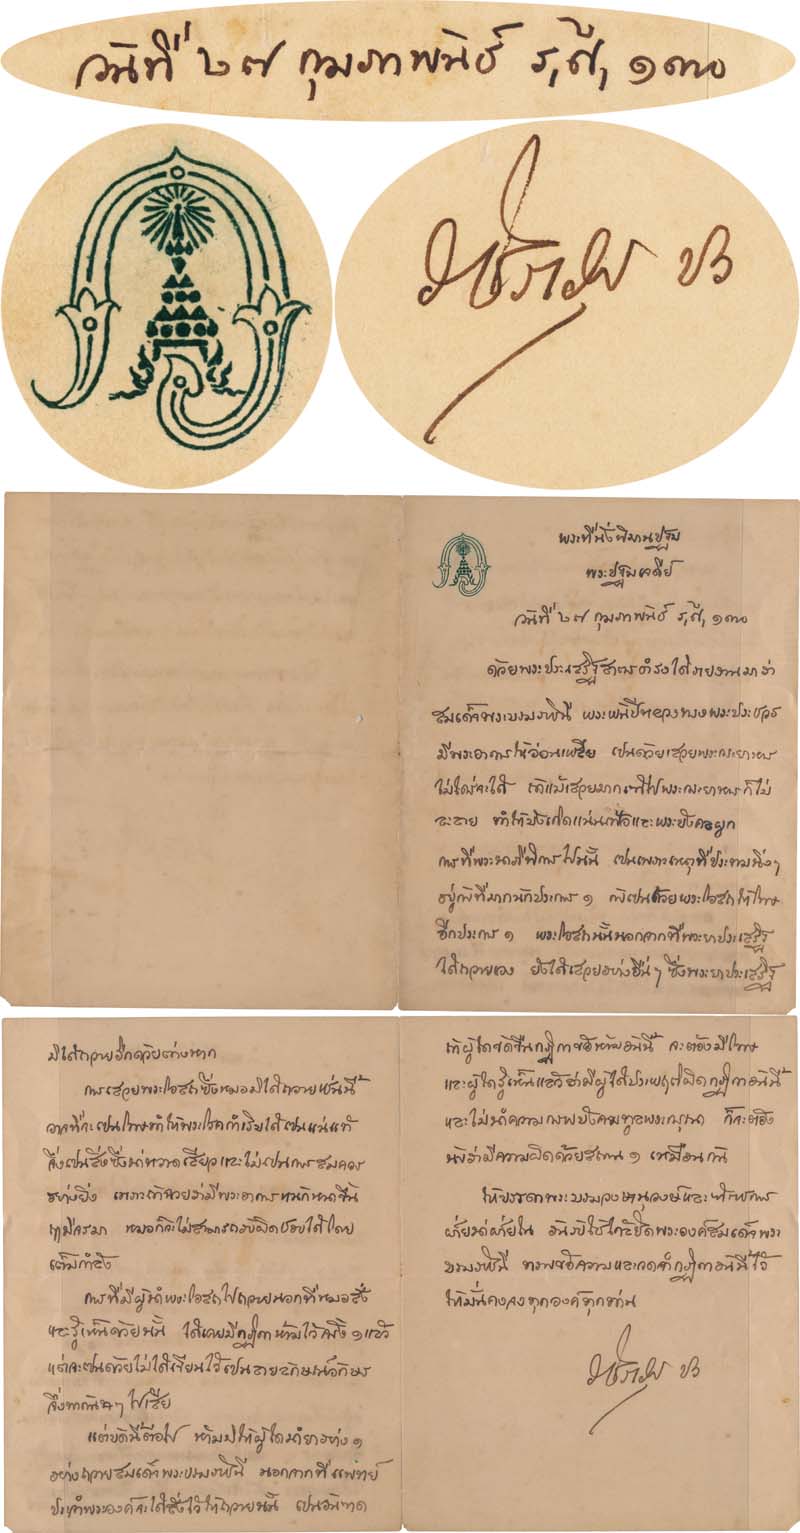 วันที่ ๒๗ กุมภาพันธ์ ร,ศ, ๑๓๐
วชิราวุธ ปร
พระที่นั่งพิมานปฐม
พระปฐมเจดีย์
วันที่ ๒๗ กุมภาพันธ์ ร,ศ, ๑๓๐
ด้วยพระประเสริฐสาตรดำรงได้รายงานมาว่า
สมเด็จพระบรมราชินี พระพันปีหลวงทรงพระประชวร
มีพระอาการให้อ่อนเพลีย เปนด้วยเสวยพระกระยาหาร
ไม่ใคร่จะได้ ถ้าแม้เสวยมากเข้าไปพระกระยาหารก็ไม่
ละลาย ทำให้บังเกิดแน่นเฟ้อและพระบังคลผูก
การที่พระนาภีพิการไปนั้น เปนเพราะเหตุที่ประทมนิ่งๆ
อยู่กับที่มากนักประการ ๑ กับเปนด้วยพระโอสถให้โทษ
อีกประการ ๑ พระโอสถนั้นนอกจากที่พระยาประเสริฐ
ได้ถวายเอง ยังได้เสวยอย่างอื่นๆ ซึ่งพระยาประเสริฐ
มิได้ถวายอีกด้วยต่างหาก
การเสวยพระโอสถซึ่งหมอมิได้ถวายเช่นนี้
อาจที่จะเปนโทษทำให้พระโรคกำเริบได้เปนแน่แท้
จึ่งเปนสิ่งซึ่งน่าหวาดเสียวและไม่เปนการสมควร
อย่างยิ่ง เพราะถ้าฉวยว่ามีพระอาการหนักหนาขึ้น
หมอก็จะไม่สามารถรับผิดชอบได้โดย
เต็มกำลัง
การที่มีผู้นำพระโอสถไปถวายนอกที่หมอสั่ง
และรู้เห็นด้วยนั้น ได้เคยมีกฎีกาห้ามไว้ครั้ง ๑ แล้ว
แต่จะเปนด้วยไม่ได้เขียนไว้เปนลายลักษณ์อักษร
จึ่งพากันลืมๆ ไปเสีย
แต่บัดนี้ต่อไป ห้ามมิให้ผู้ใดนำยาอย่าง ๑
อย่างใดถวายสมเด็จพระบรมราชินี นอกจากที่แพทย์
ประจำพระองค์จะได้สั่งไว้ให้ถวายนั้น เปนอันขาด
ถ้าผู้ใดขัดขืนกฎีกาข้อห้ามอันนี้ จะต้องมีโทษ
และผู้ใดรู้เห็นแล้วว่ามีผู้ใดประพฤติผิดกฎีกาอันนี้
และไม่นำความกราบบังคมทูลพระกรุณา ก็จะต้อง
นับว่ามีความผิดด้วยสถาน ๑ เหมือนกัน
ให้บรรดาพระบรมวงษานุวงษ์และข้าราชการ
ฝ่ายน่าฝ่ายใน อันรับใช้ใกล้ชิดพระองค์สมเด็จพระ
บรมราชินี ทราบข้อความและจดจำกฎีกาอันนี้ไว้
ให้มั่นคงจงทุกองค์ทุกท่าน
วชิราวุธ ปร